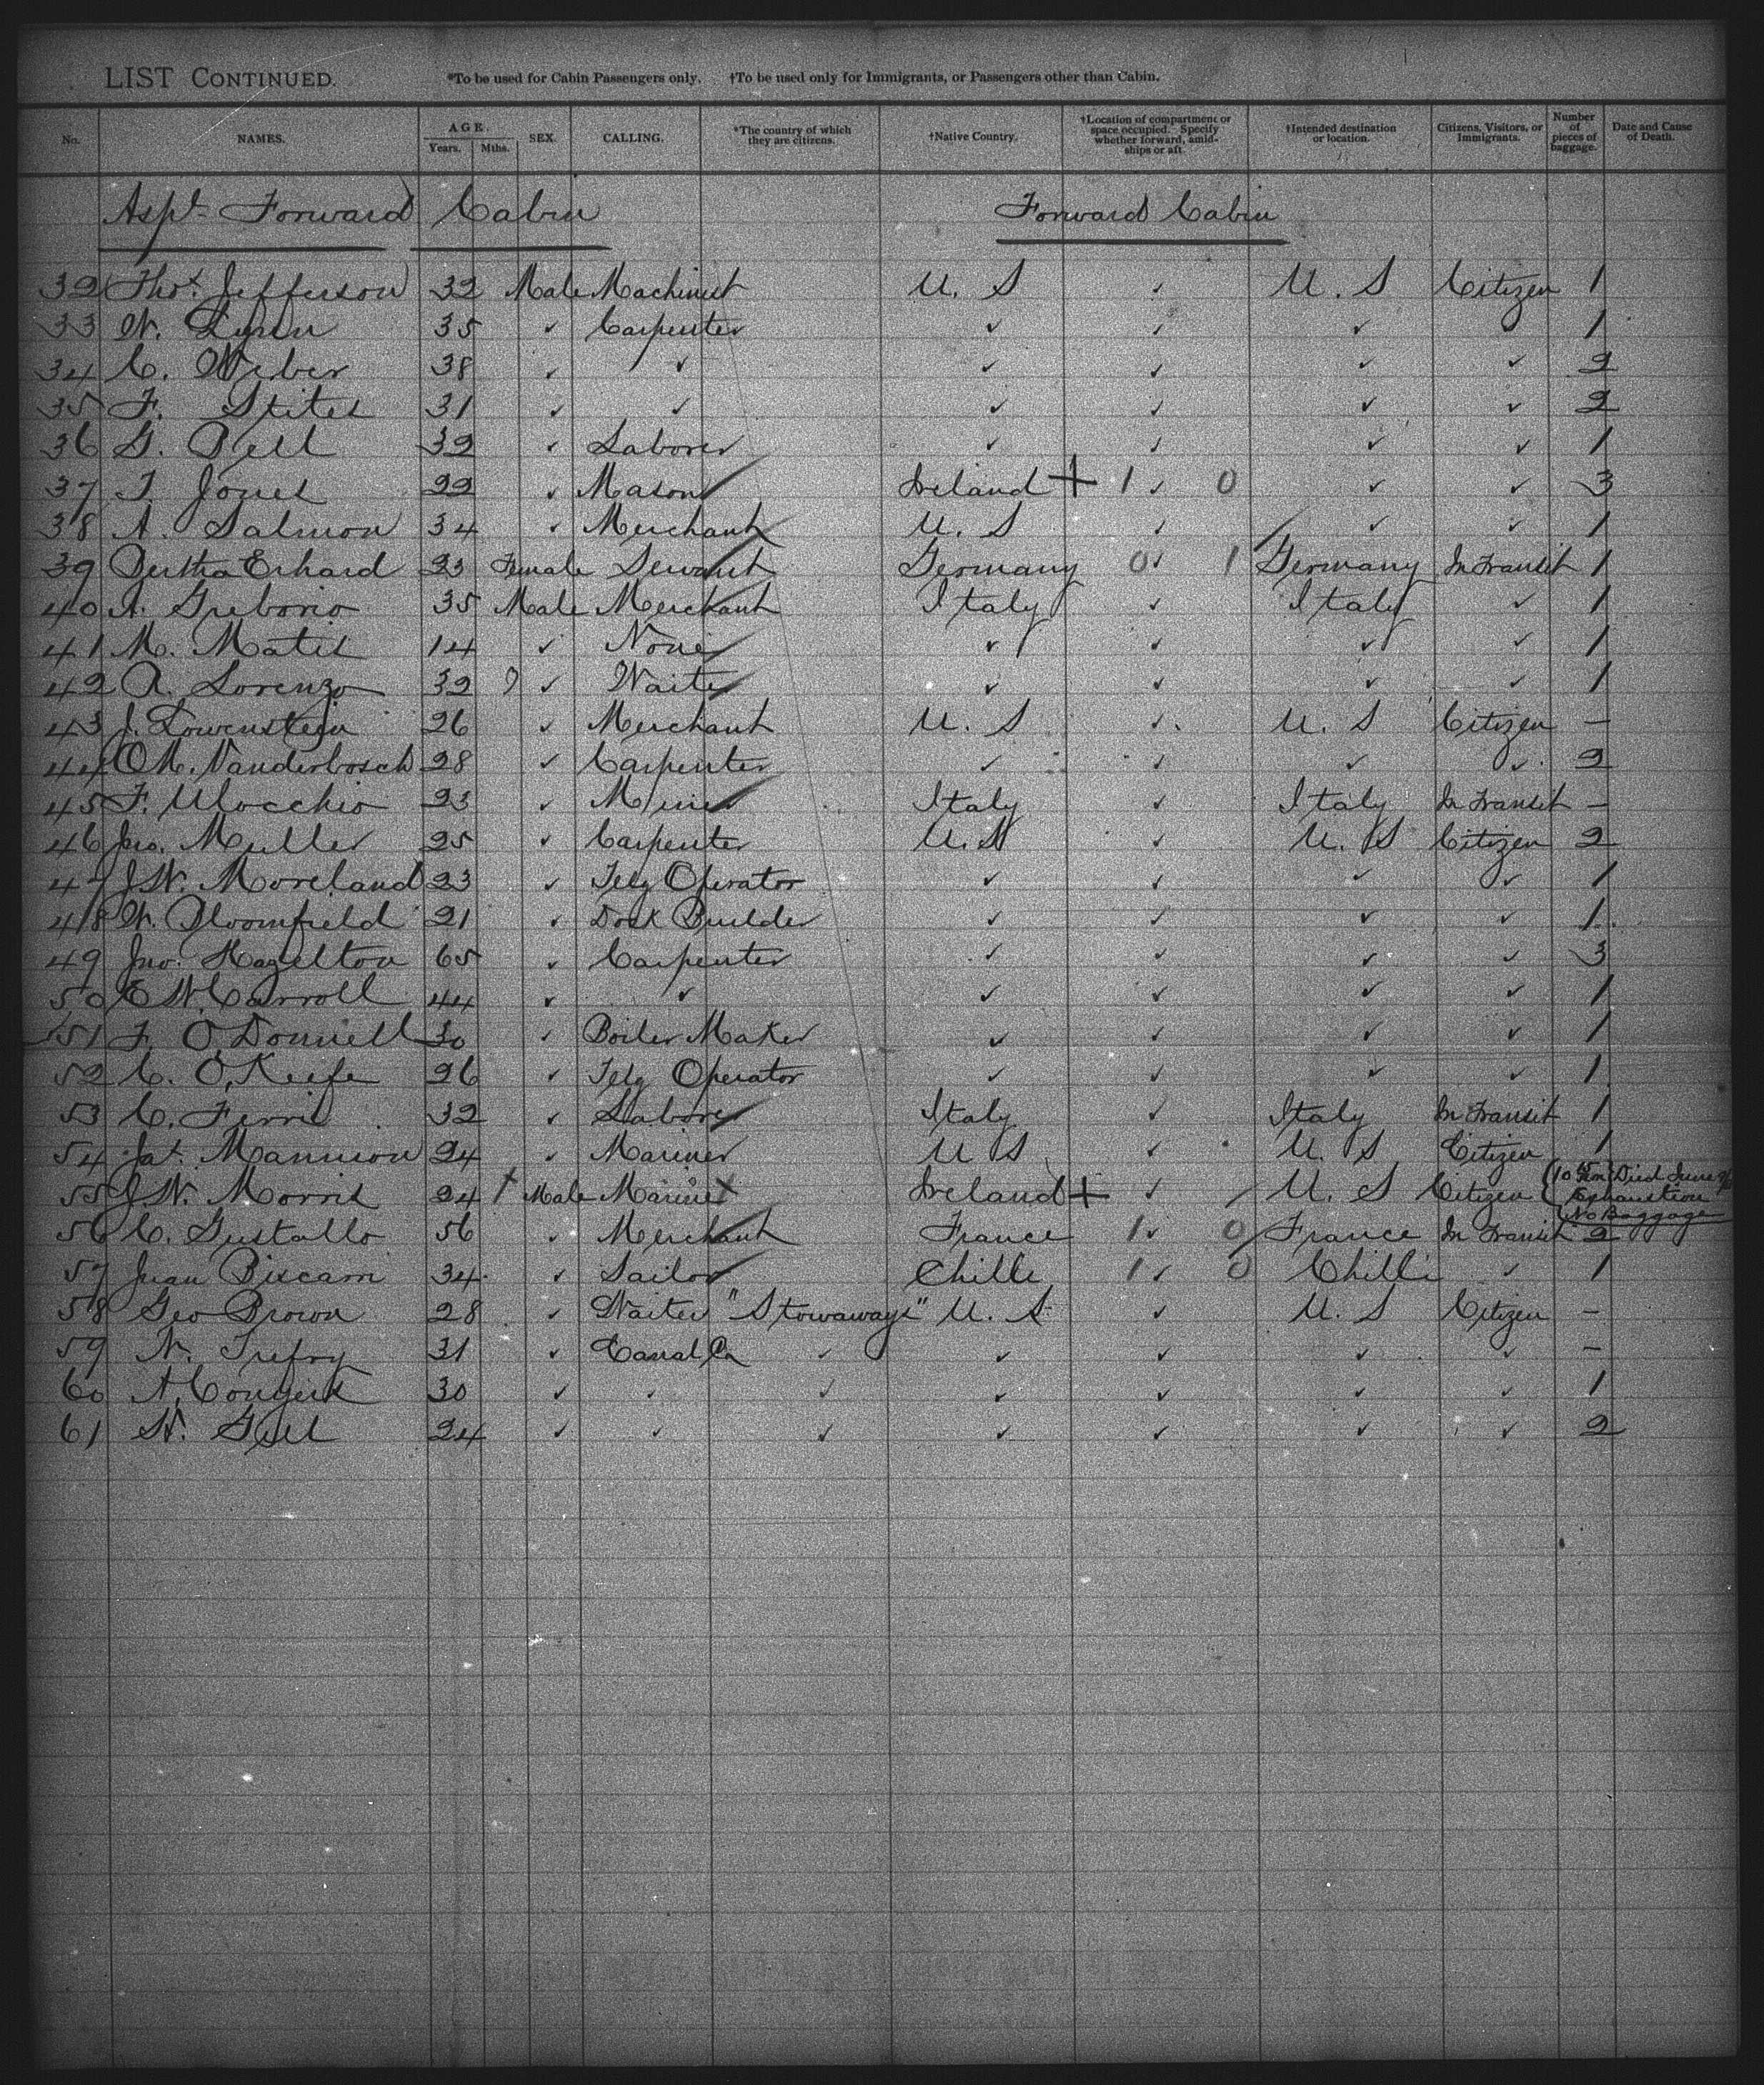 LIST CONTINUED. *To be used for Cabin Passengers only. †To be used only for Immigrants, or Passengers other than Cabin.
No. NAMES. AGE. Years. Mths. SEX. CALLING. *The country of which they are citizens. †Native Country. †Location of compartment or space occupied. Specify whether forward, amidships or aft. †Intended destination or location. Citizens, Visitors, or Immigrants. Number of pieces of baggage. Date and Cause of Death.
Aspl Forward Cabin Forward Cabin
32 Thos. Jefferson 32 Male Machinist U. S ✓ U. S Citizen 1
33 W. Lynn 35 ✓ Carpenter ✓ ✓ ✓ ✓ 1
34 C. Weber 38 ✓ ✓ ✓ ✓ ✓ ✓ 2
35 F. Stites 31 ✓ ✓ ✓ ✓ ✓ ✓ 2
36 G. Bell 32 ✓ Laborer ✓ ✓ ✓ ✓ 1
37 T. Jones 22 ✓ Mason Ireland + 1 ✓ 0 ✓ ✓ 3
38 A. Salmon 34 ✓ Merchant U. S ✓ ✓ ✓ 1
39 Bertha Erhard 23 Female Servant Germany 0 ✓ 1 Germany In Transit 1
40 A. Greborio 35 Male Merchant Italy ✓ Italy ✓ 1
41 M. Matis 14 ✓ None ✓ ✓ ✓ ✓ 1
42 A. Lorenzo 32 ✓ Waiter ✓ ✓ ✓ ✓ 1
43 J. Lowenstein 26 ✓ Merchant U. S ✓ U. S Citizen –
44 O M. Vanderbosch 28 ✓ Carpenter ✓ ✓ ✓ ✓ 2
45 F. Ulocchio 23 ✓ Miner Italy ✓ Italy In Transit –
46 Jno. Muller 25 ✓ Carpenter U. S ✓ U. S Citizen 2
47 J.W. Moreland 23 ✓ Telg Operator ✓ ✓ ✓ ✓ 1
48 W. Bloomfield 21 ✓ Dock Builder ✓ ✓ ✓ ✓ 1
49 Jno. Hazelton 65 ✓ Carpenter ✓ ✓ ✓ ✓ 3
50 E W. Carroll 44 ✓ ✓ ✓ ✓ ✓ ✓ 1
51 F. O'Donnell 30 ✓ Boiler Maker ✓ ✓ ✓ ✓ 1
52 C. O'Keefe 26 ✓ Telg Operator ✓ ✓ ✓ ✓ 1
53 C. Ferris 32 ✓ Laborer Italy ✓ Italy In Transit 1
54 Jas. Mannion 24 ✓ Mariner U S ✓ U. S Citizen 1
55 J.W. Morris 24 Male Mariner Ireland + ✓ U. S Citizen Died June Exhaustion No Baggage
56 C. Gustallo 56 ✓ Merchant France 1 ✓ 0 France In Transit 2
57 Juan Biscam 34 ✓ Sailor Chilli 1 ✓ 0 Chilli ✓ 1
58 Geo Brown 28 ✓ Waiter "Stowaways" U. S ✓ U. S Citizen –
59 N. Trefry 31 ✓ Canal Co ✓ ✓ ✓ ✓ ✓ –
60 A. 30 ✓ ✓ ✓ ✓ ✓ ✓ ✓ 1
61 W. 24 ✓ ✓ ✓ ✓ ✓ ✓ ✓ 2